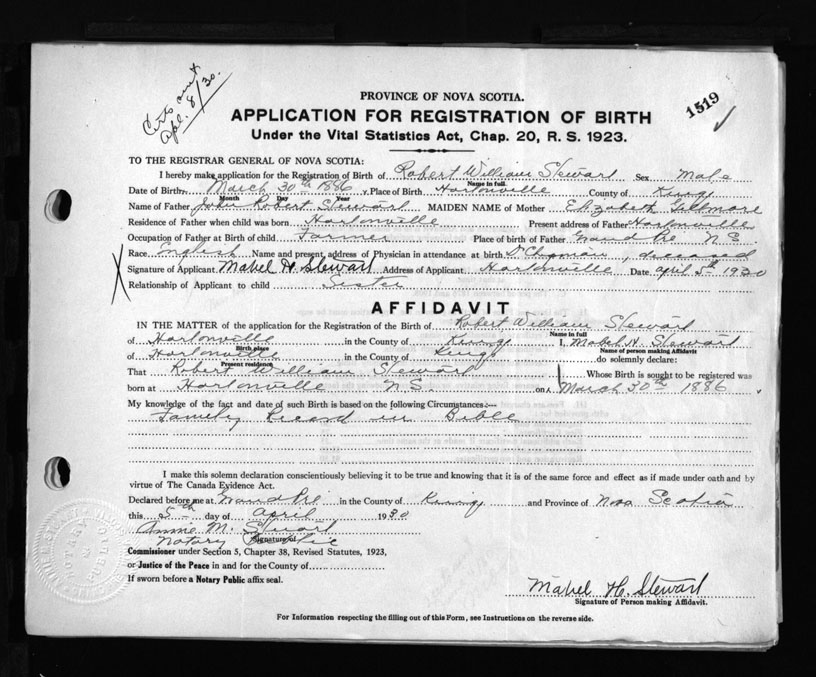 Certs sent
Apl. 8/30.
1519
PROVINCE OF NOVA SCOTIA.
APPLICATION FOR REGISTRATION OF BIRTH
Under the Vital Statistics Act, Chap. 20, R. S. 1923.
TO THE REGISTRAR GENERAL OF NOVA SCOTIA:
I hereby make application for the Registration of Birth of Robert William Stewart Sex Male
Name in full.
Date of Birth March 30th 1886 Place of Birth Hortonville County of Kings
Month Day Year
Name of Father John Robert Stewart MAIDEN NAME of Mother Elizabeth Gillmore
Residence of Father when child was born Hortonville Present address of Father Hortonville
Occupation of Father at Birth of child Farmer Place of birth of Father Grand Pre N S.
Race English Name and present, address of Physician in attendance at birth Dr Chipman, deceased
Signature of Applicant Mabel H. Stewart Address of Applicant Hortonville Date April 5th 1930
Relationship of Applicant to child Sister
AFFIDAVIT
IN THE MATTER of the application for the Registration of the Birth of Robert William Stewart
Name in full
of Hortonville in the County of Kings I, Mabel H. Stewart
Birth place Name of person making Affidavit
of Hortonville in the County of Kings do solemnly declare:
Present residence
That Robert William Stewart Whose Birth is sought to be registered was
born at Hortonville N.S. on March 30th 1886
My knowledge of the fact and date of such Birth is based on the following Circumstances:—
Family Record in Bible
I make this solemn declaration conscientiously believing it to be true and knowing that it is of the same force and effect as if made under oath and by
virtue of The Canada Evidence Act.
Declared before me at Grand Pré in the County of Kings and Province of Nova Scotia
this 5th day of April 1930
Annie M. Stuart
Signature of
Notary Public
Commissioner under Section 5, Chapter 38, Revised Statutes, 1923,
or Justice of the Peace in and for the County of
If sworn before a Notary Public affix seal.
Mabel H. Stewart
Signature of Person making Affidavit.
For Information respecting the filling out of this Form, see Instructions on the reverse side.